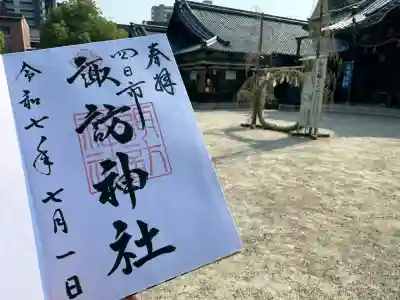 奉拝
四日市
諏訪神社
令和七年七月一日